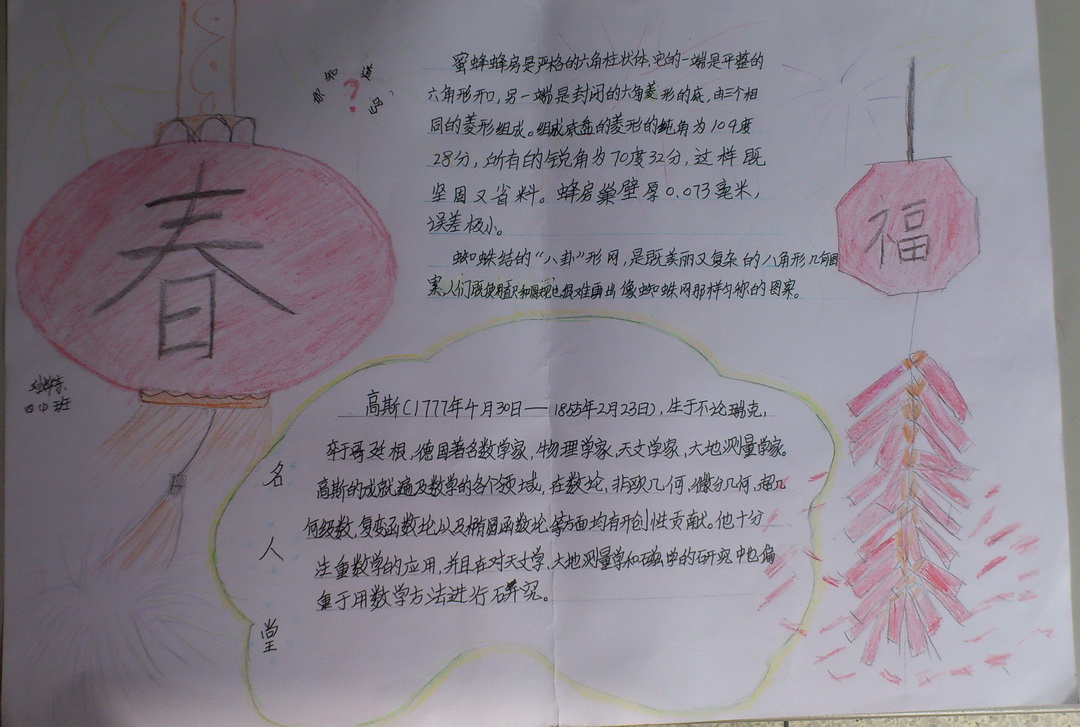 春
你知道吗?
蜜蜂蜂房是严格的六角柱状体,它的一端是平整的
六角形开口,另一端是封闭的六角菱形的底,由三个相
同的菱形组成。组成底盘的菱形的钝角为109度
28分,所有的锐角为70度32分,这样既
坚固又省料。蜂房巢壁厚0.073毫米,
误差极小。
蜘蛛结的“八卦”形网,是既美丽又复杂的八角形几何图
案,人们既使用直尺和圆规也很难画出像蜘蛛网那样匀称的图案。
福
四(1)班
名人堂
高斯(1777年4月30日——1855年2月23日),生于不伦瑞克,
卒于哥廷根,德国著名数学家,物理学家,天文学家,大地测量学家。
高斯的成就遍及数学的各个领域,在数论,非欧几何,微分几何,超几
何级数,复变函数论以及椭圆函数论等方面均有开创性贡献。他十分
注重数学的应用,并且在对天文学,大地测量学和磁学的研究中也偏
重于用数学方法进行研究。